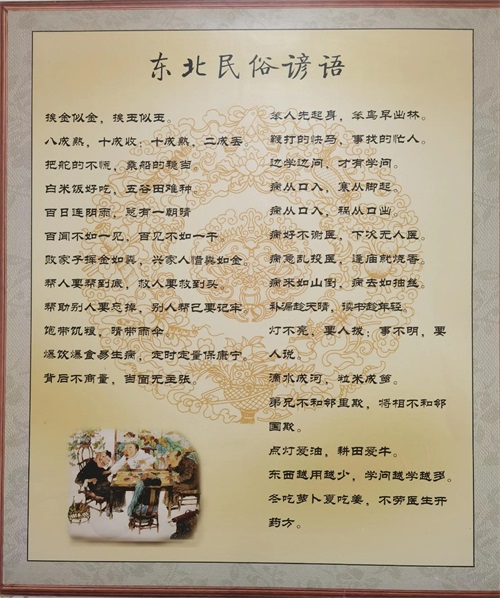 东北民俗谚语
挨金似金，挨玉似玉。
八成熟，十成收；十成熟，二成丢。
把舵的不慌，乘船的稳当。
白米饭好吃，五谷田难种。
百日连阴雨，总有一朝晴
百闻不如一见，百见不如一干。
败家子挥金如粪，兴家人惜粪如金。
帮人要帮到底，救人要救到头。
帮助别人要忘掉，别人帮己要记牢
饱带饥粮，晴带雨伞
爆饮爆食易生病，定时定量保康宁。
背后不商量，当面无主张。
笨人先起身，笨鸟早出林。
鞭打的快马，事找的忙人。
边学边问，才有学问。
病从口入，寒从脚起。
病从口入，祸从口出。
病好不谢医，下次无人医。
病急乱投医，逢庙就烧香。
病来如山倒，病去如抽丝。
补漏趁天晴，读书趁年轻。
灯不亮，要人拨；事不明，要
人说。
滴水成河，粒米成箩。
弟兄不和邻里欺，将相不和邻
国欺。
点灯爱油，耕田爱牛。
东西越用越少，学问越学越多。
冬吃萝卜夏吃姜，不劳医生开
药方。